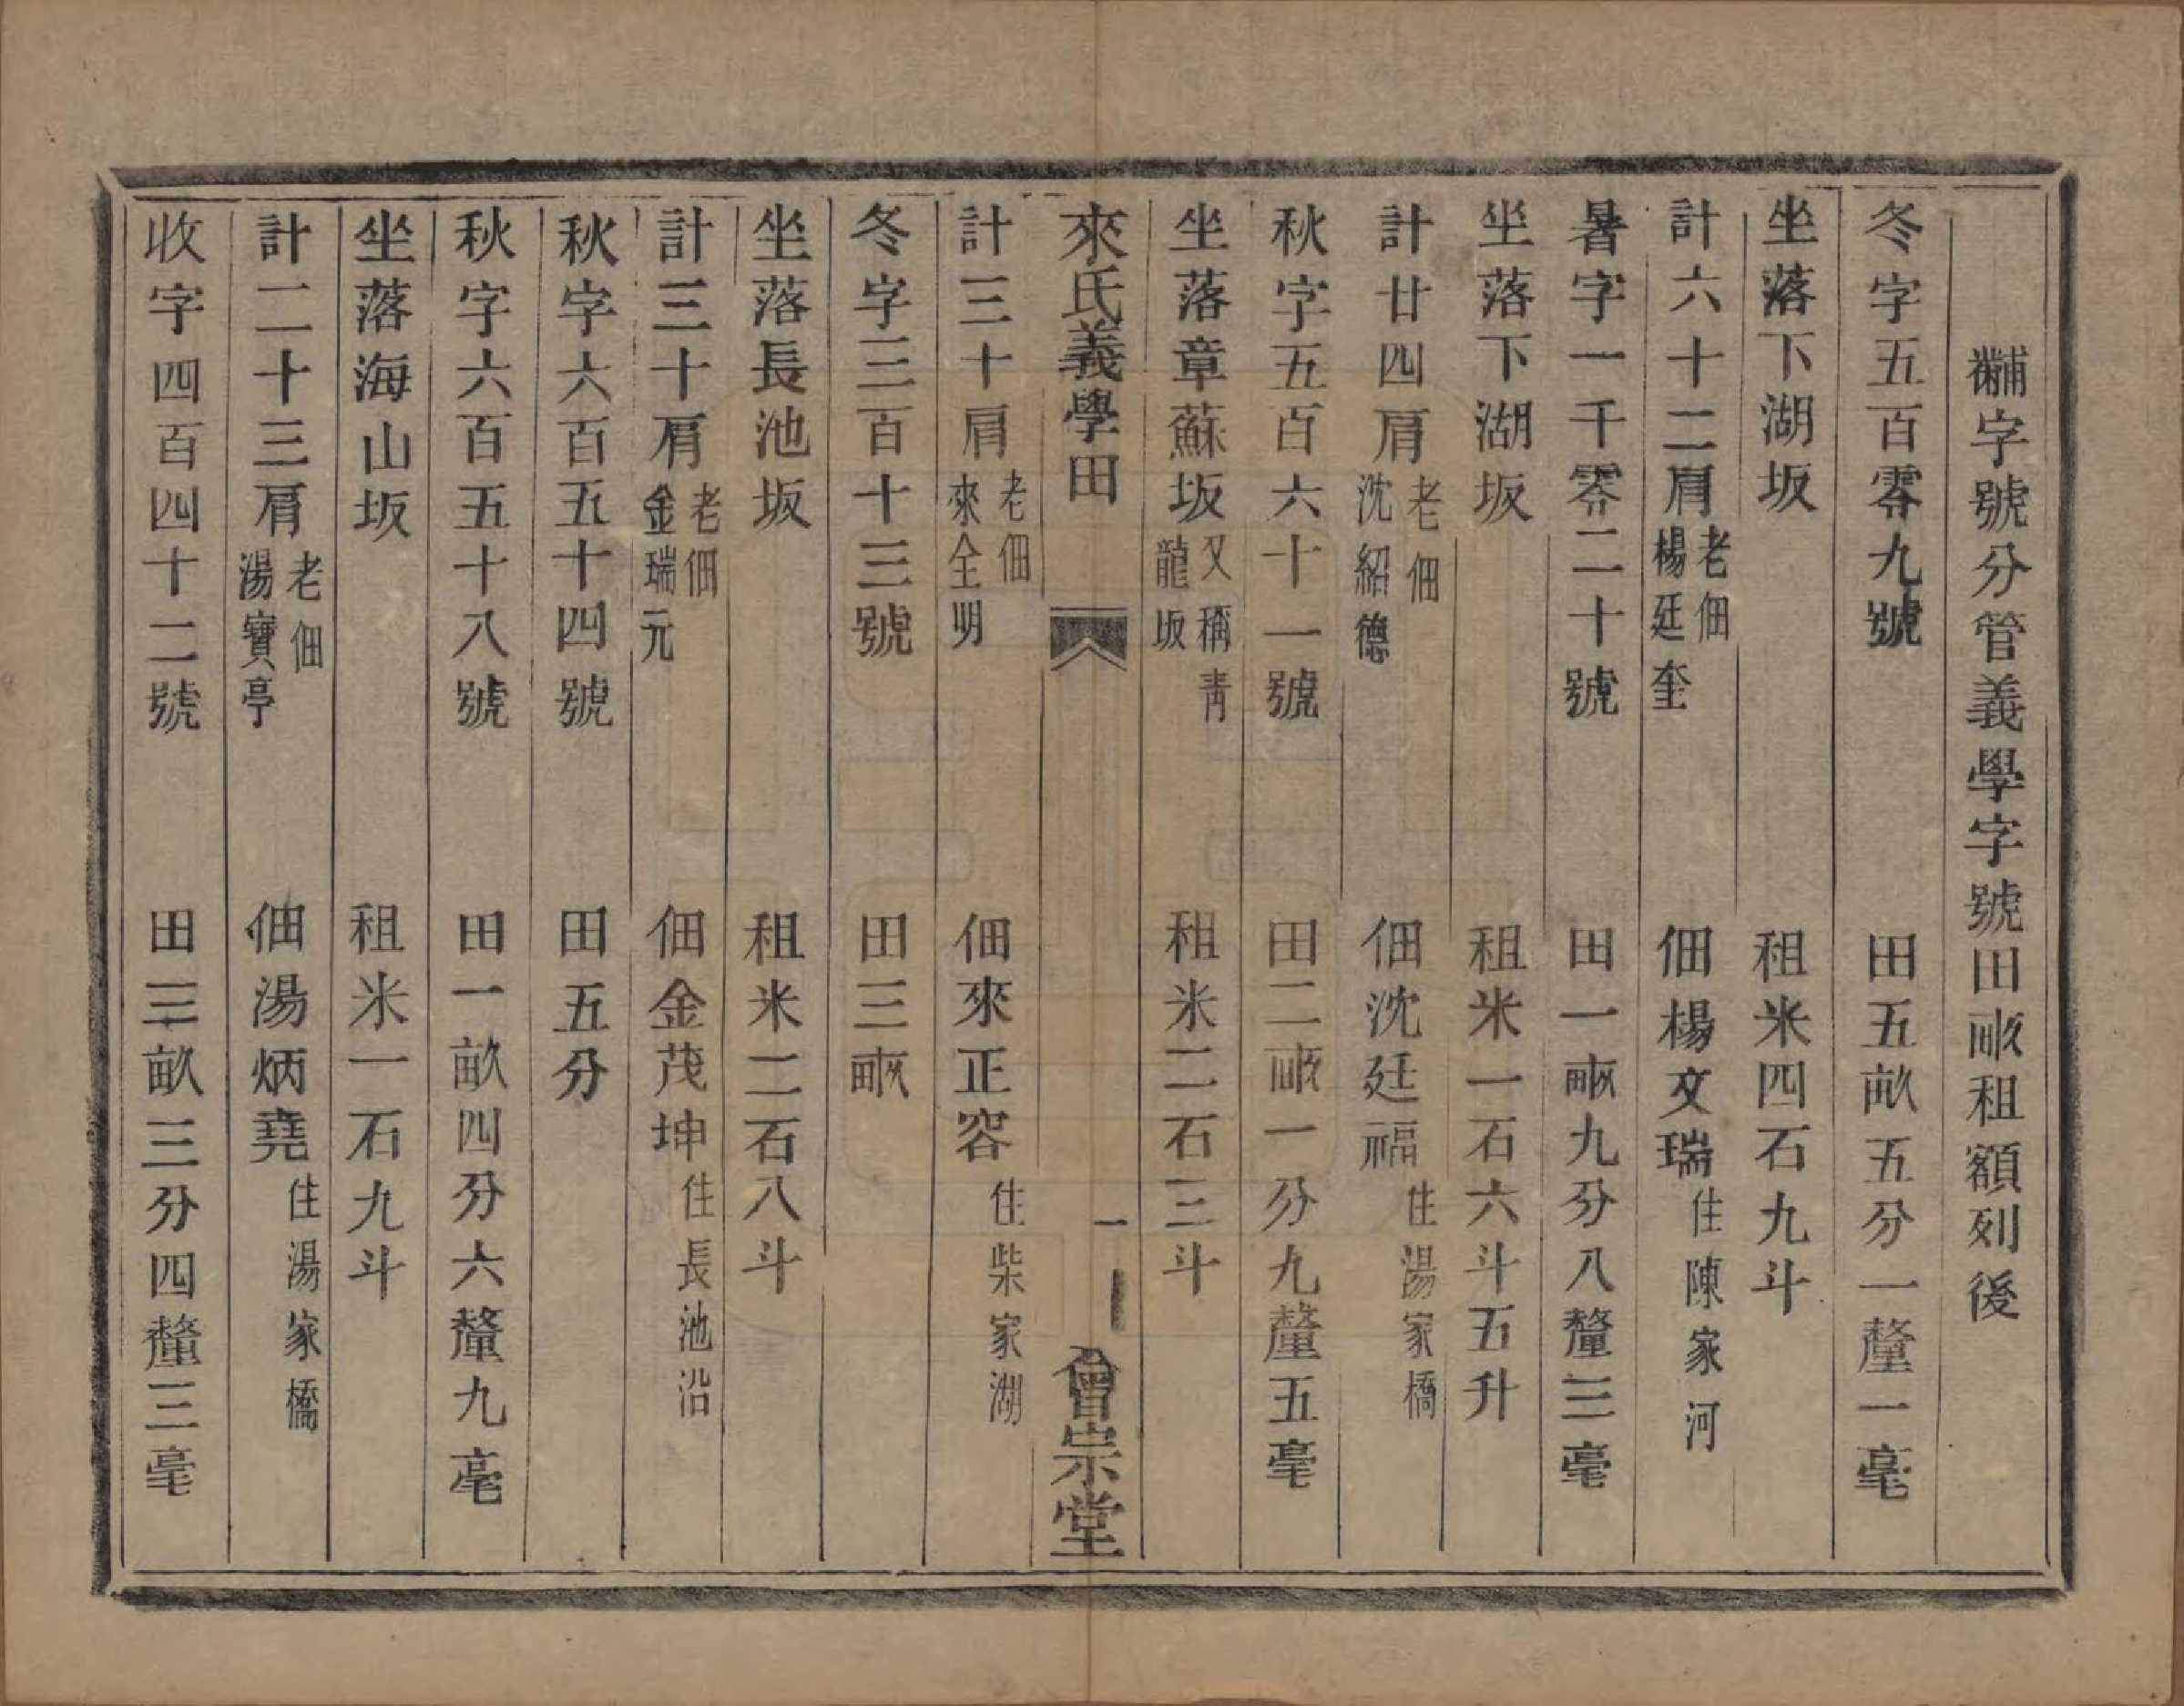 黼字號分管義學字號田畝租額列後
冬字五百零九號 田五畝五分一釐一毫
坐落下湖坂 租米四石九斗
計六十二肩 老佃楊廷奎 佃楊文瑞 住陳家河
暑字一千零二十號 田一畝九分八釐三毫
坐落下湖坂 租米一石六斗五升
計廿四肩 老佃沈紹德 佃沈廷福 住湯家橋
秋字五百六十一號 田二畝一分九釐五毫
坐落章蘇坂 又稱青龍坂 租米二石三斗
來氏義學田 一 會宗堂
計三十肩 老佃來全明 佃來正容 住柴家湖
冬字三百十三號 田三畝
坐落長池坂 租米二石八斗
計三十肩 老佃金瑞元 佃金茂坤 住長池沿
秋字六百五十四號 田五分
秋字六百五十八號 田一畝四分六釐九毫
坐落海山坂 租米一石九斗
計二十三肩 老佃湯寶亭 佃湯炳堯 住湯家橋
收字四百四十二號 田三畝三分四釐三毫